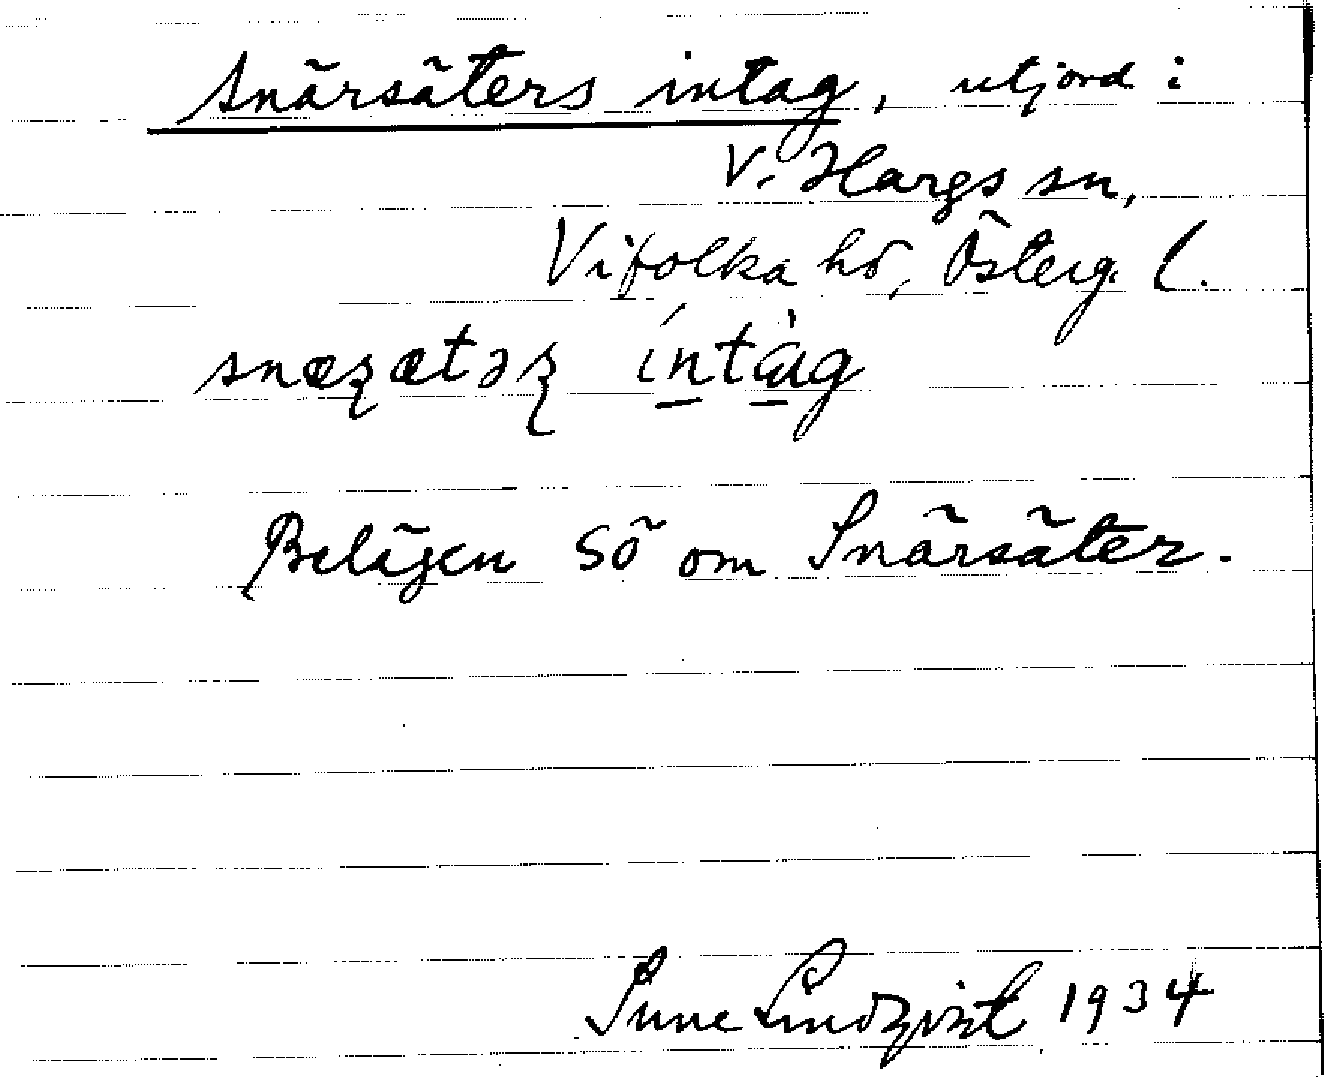 Snärsäters intag, utjord i
V. Hargs sn,
Vifolka hd, Österg. l.
snæʐætəʐ íntàg
Belägen SÖ om Snärsäter.
Sune Lindqvist 1934